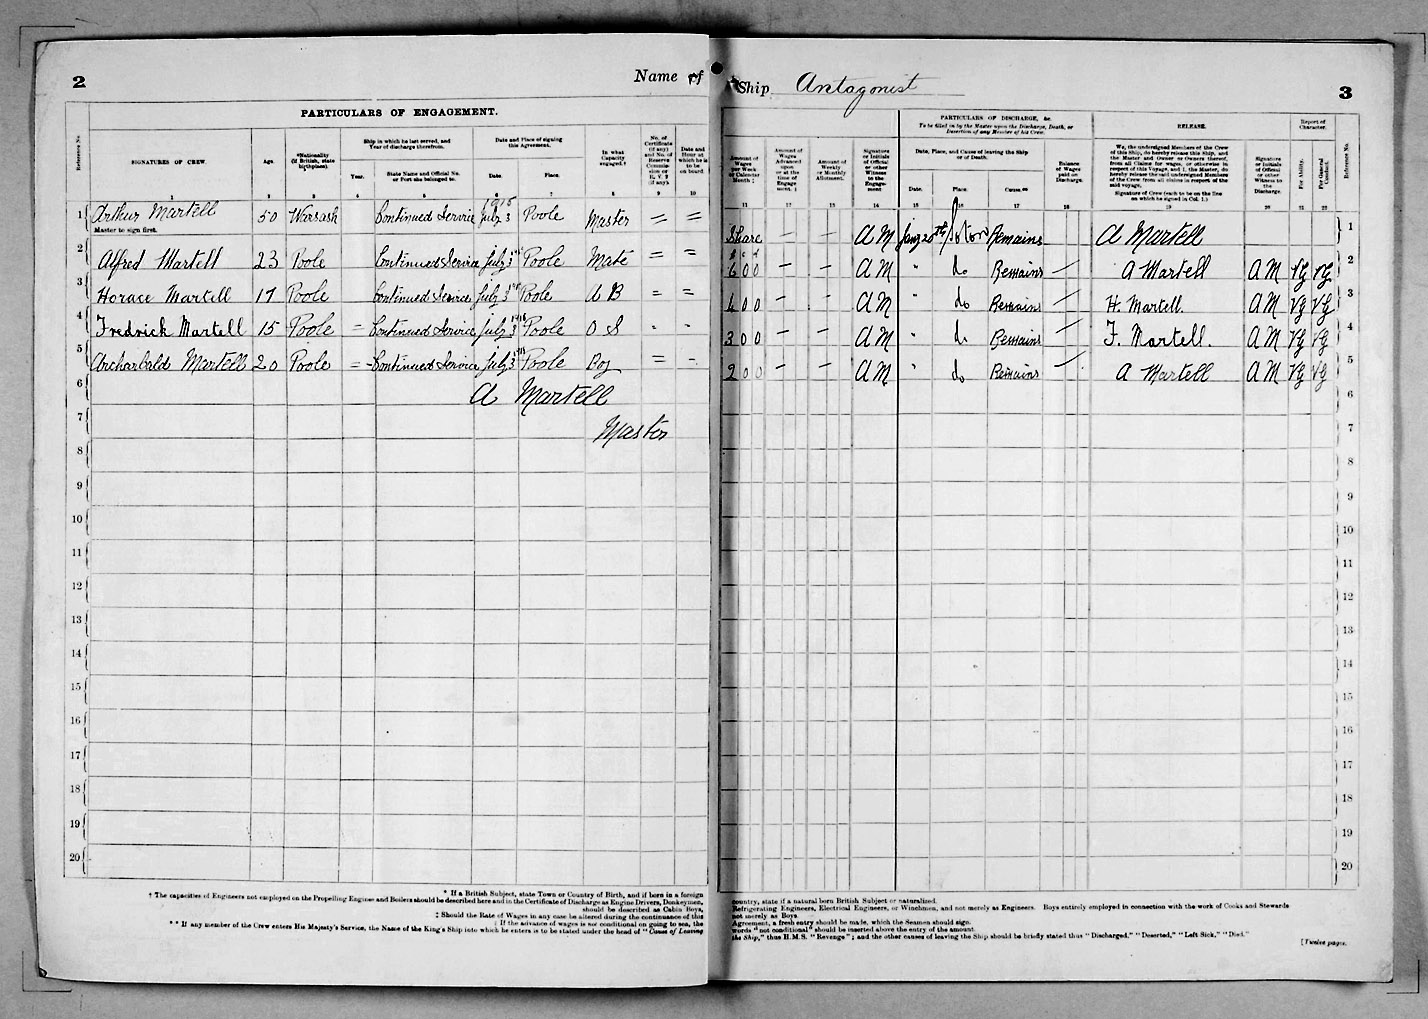 2
Name of
Ship Antagonist
3
PARTICULARS OF ENGAGEMENT.
Reference No.
SIGNATURES OF CREW.
Age.
*Nationality (if British, state birthplace).
Ship in which he last served, and Year of discharge therefrom.
Year.
State Name and Official No. or Port she belonged to.
Date and Place of signing this Agreement.
Date.
Place.
In what Capacity engaged.†
No. of Certificate (if any) and No. of Reserve Commission or R. V. 2 (if any).
Date and Hour at which he is to be on board.
1 2 3 4 5 6 7 8 9 10
1 Arthur Martell 50 Warsash Continued Service 1915 July 3 Poole Master = =
Master to sign first.
2 Alfred Martell 23 Poole Continued Service July 3 Poole Mate = =
3 Horace Martell 17 Poole Continued Service July 3 Poole A B = =
4 Fredrick Martell 15 Poole = Continued Service July 3 Poole O S
5 Archarbald Martell 20 Poole = Continued Service July 3 Poole Boy =
6 A Martell
7 Master
8
9
10
11
12
13
14
15
16
17
18
19
20
* If a British Subject, state Town or Country of Birth, and if born in a foreign
† The capacities of Engineers not employed on the Propelling Engines and Boilers should be described here and in the Certificate of Discharge as Engine Drivers, Donkeymen,
should be described as Cabin Boys,
‡ Should the Rate of Wages in any case be altered during the continuance of this
If the advance of wages is not conditional on going to sea, the
** If any member of the Crew enters His Majesty's Service, the Name of the King's Ship into which he enters is to be stated under the head of "Cause of Leaving
PARTICULARS OF DISCHARGE, &c.
To be filled in by the Master upon the Discharge, Death, or Desertion of any Member of his Crew.
RELEASE.
Report of Character.
Amount of Wages per Week or Calendar Month ‡
Amount of Wages Advanced upon or at the time of Engagement.
Amount of Weekly or Monthly Allotment.
Signature or Initials of Official or other Witness to the Engagement
Date, Place, and Cause of leaving the Ship or of Death.
Date.
Place.
Cause.**
Balance of Wages paid on Discharge.
We, the undersigned Members of the Crew of this Ship, do hereby release this Ship, and the Master and Owner or Owners thereof, from all Claims for wages, or otherwise in respect of this Voyage, and I, the Master, do hereby release the said undersigned Members of the Crew from all claims in respect of the said voyage.
Signature of Crew (each to be on the line on which he signed in Col. 1.)
Signature or Initials of Official or other Witness to the Discharge.
For Ability.
For General Conduct.
Reference No.
11 12 13 14 15 16 17 18 19 20 21 22
Share — — A M Jany 20th Soton Remains A Martell 1
£ s d
6 0 0 — — A M " do Remains — A Martell A M VG VG 2
4 0 0 — — A M " do Remains — H. Martell. A M VG VG 3
3 0 0 — — A M " do Remains — F. Martell. A M VG VG 4
2 0 0 — — A M " do Remains — A Martell A M VG VG 5
6
7
8
9
10
11
12
13
14
15
16
17
18
19
20
country, state if a natural born British Subject or naturalized.
Refrigerating Engineers, Electrical Engineers, or Winchmen, and not merely as Engineers. Boys entirely employed in connection with the work of Cooks and Stewards
not merely as Boys.
Agreement, a fresh entry should be made, which the Seamen should sign.
words "not conditional" should be inserted above the entry of the amount.
the Ship," thus H.M.S. "Revenge"; and the other causes of leaving the Ship should be briefly stated thus "Discharged," "Deserted," "Left Sick," "Died."
[Twelve pages.